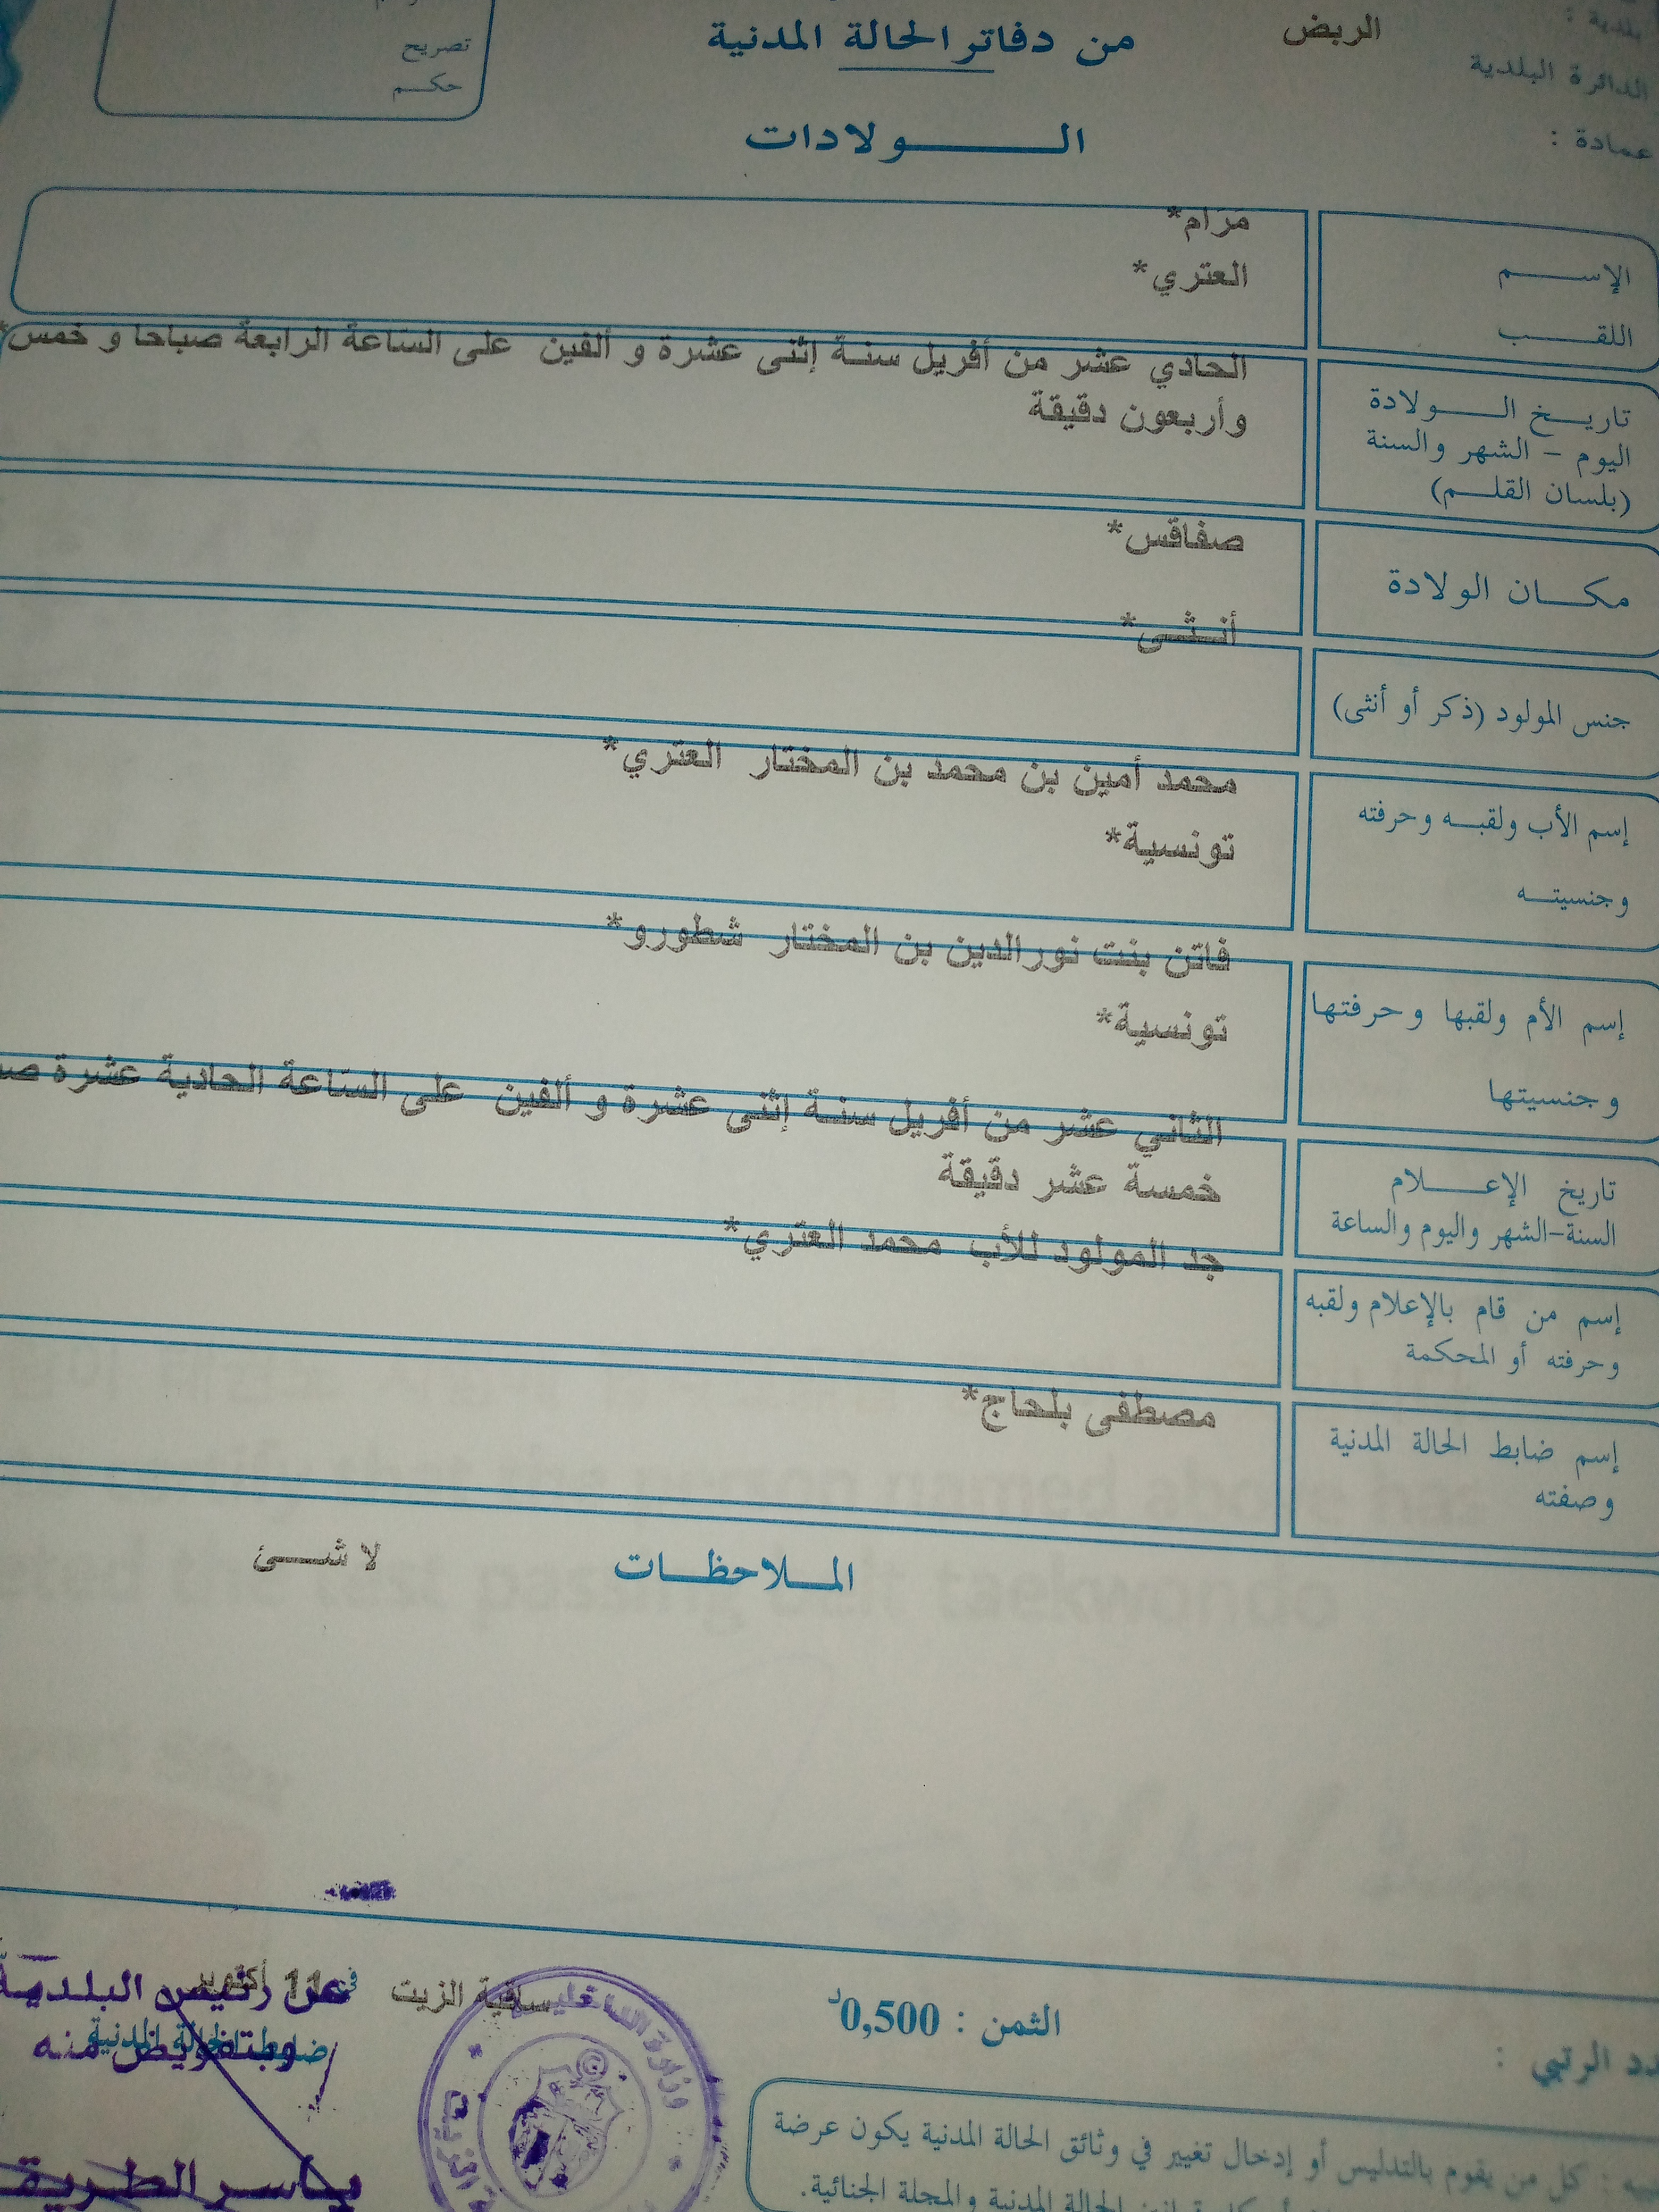 بلدية :
الربض
من دفاتر الحالة المدنية
تصريح
الدائرة البلدية
حكم
عمادة :
الولادات
الإسم
مرام*
اللقب
العتري*
تاريخ الولادة
اليوم - الشهر والسنة
(بلسان القلم)
الحادي عشر من أفريل سنة إثنى عشرة و ألفين على الساعة الرابعة صباحا و خمس*
وأربعون دقيقة
مكان الولادة
صفاقس*
جنس المولود (ذكر أو أنثى)
أنثى*
إسم الأب ولقبه وحرفته
وجنسيته
محمد أمين بن محمد بن المختار العتري*
تونسية*
إسم الأم ولقبها وحرفتها
وجنسيتها
فاتن بنت نورالدين بن المختار شطورو*
تونسية*
تاريخ الإعلام
السنة-الشهر واليوم والساعة
الثاني عشر من أفريل سنة إثنى عشرة و ألفين على الساعة الحادية عشرة
خمسة عشر دقيقة
إسم من قام بالإعلام ولقبه
وحرفته أو المحكمة
جد المولود للأب محمد العتري*
إسم ضابط الحالة المدنية
وصفته
مصطفى بلحاج*
الملاحظات
لا شئ
الثمن : 0,500د
ساقية الزيت
في 11 أكتوبر
عن رئيس البلدية
ضابط الحالة المدنية
وبتفويض منه
ياسر الطريقي
وزارة الداخلية
الرتبي :
كل من يقوم بالتدليس أو إدخال تغيير في وثائق الحالة المدنية يكون عرضة
الحالة المدنية والمجلة الجنائية.